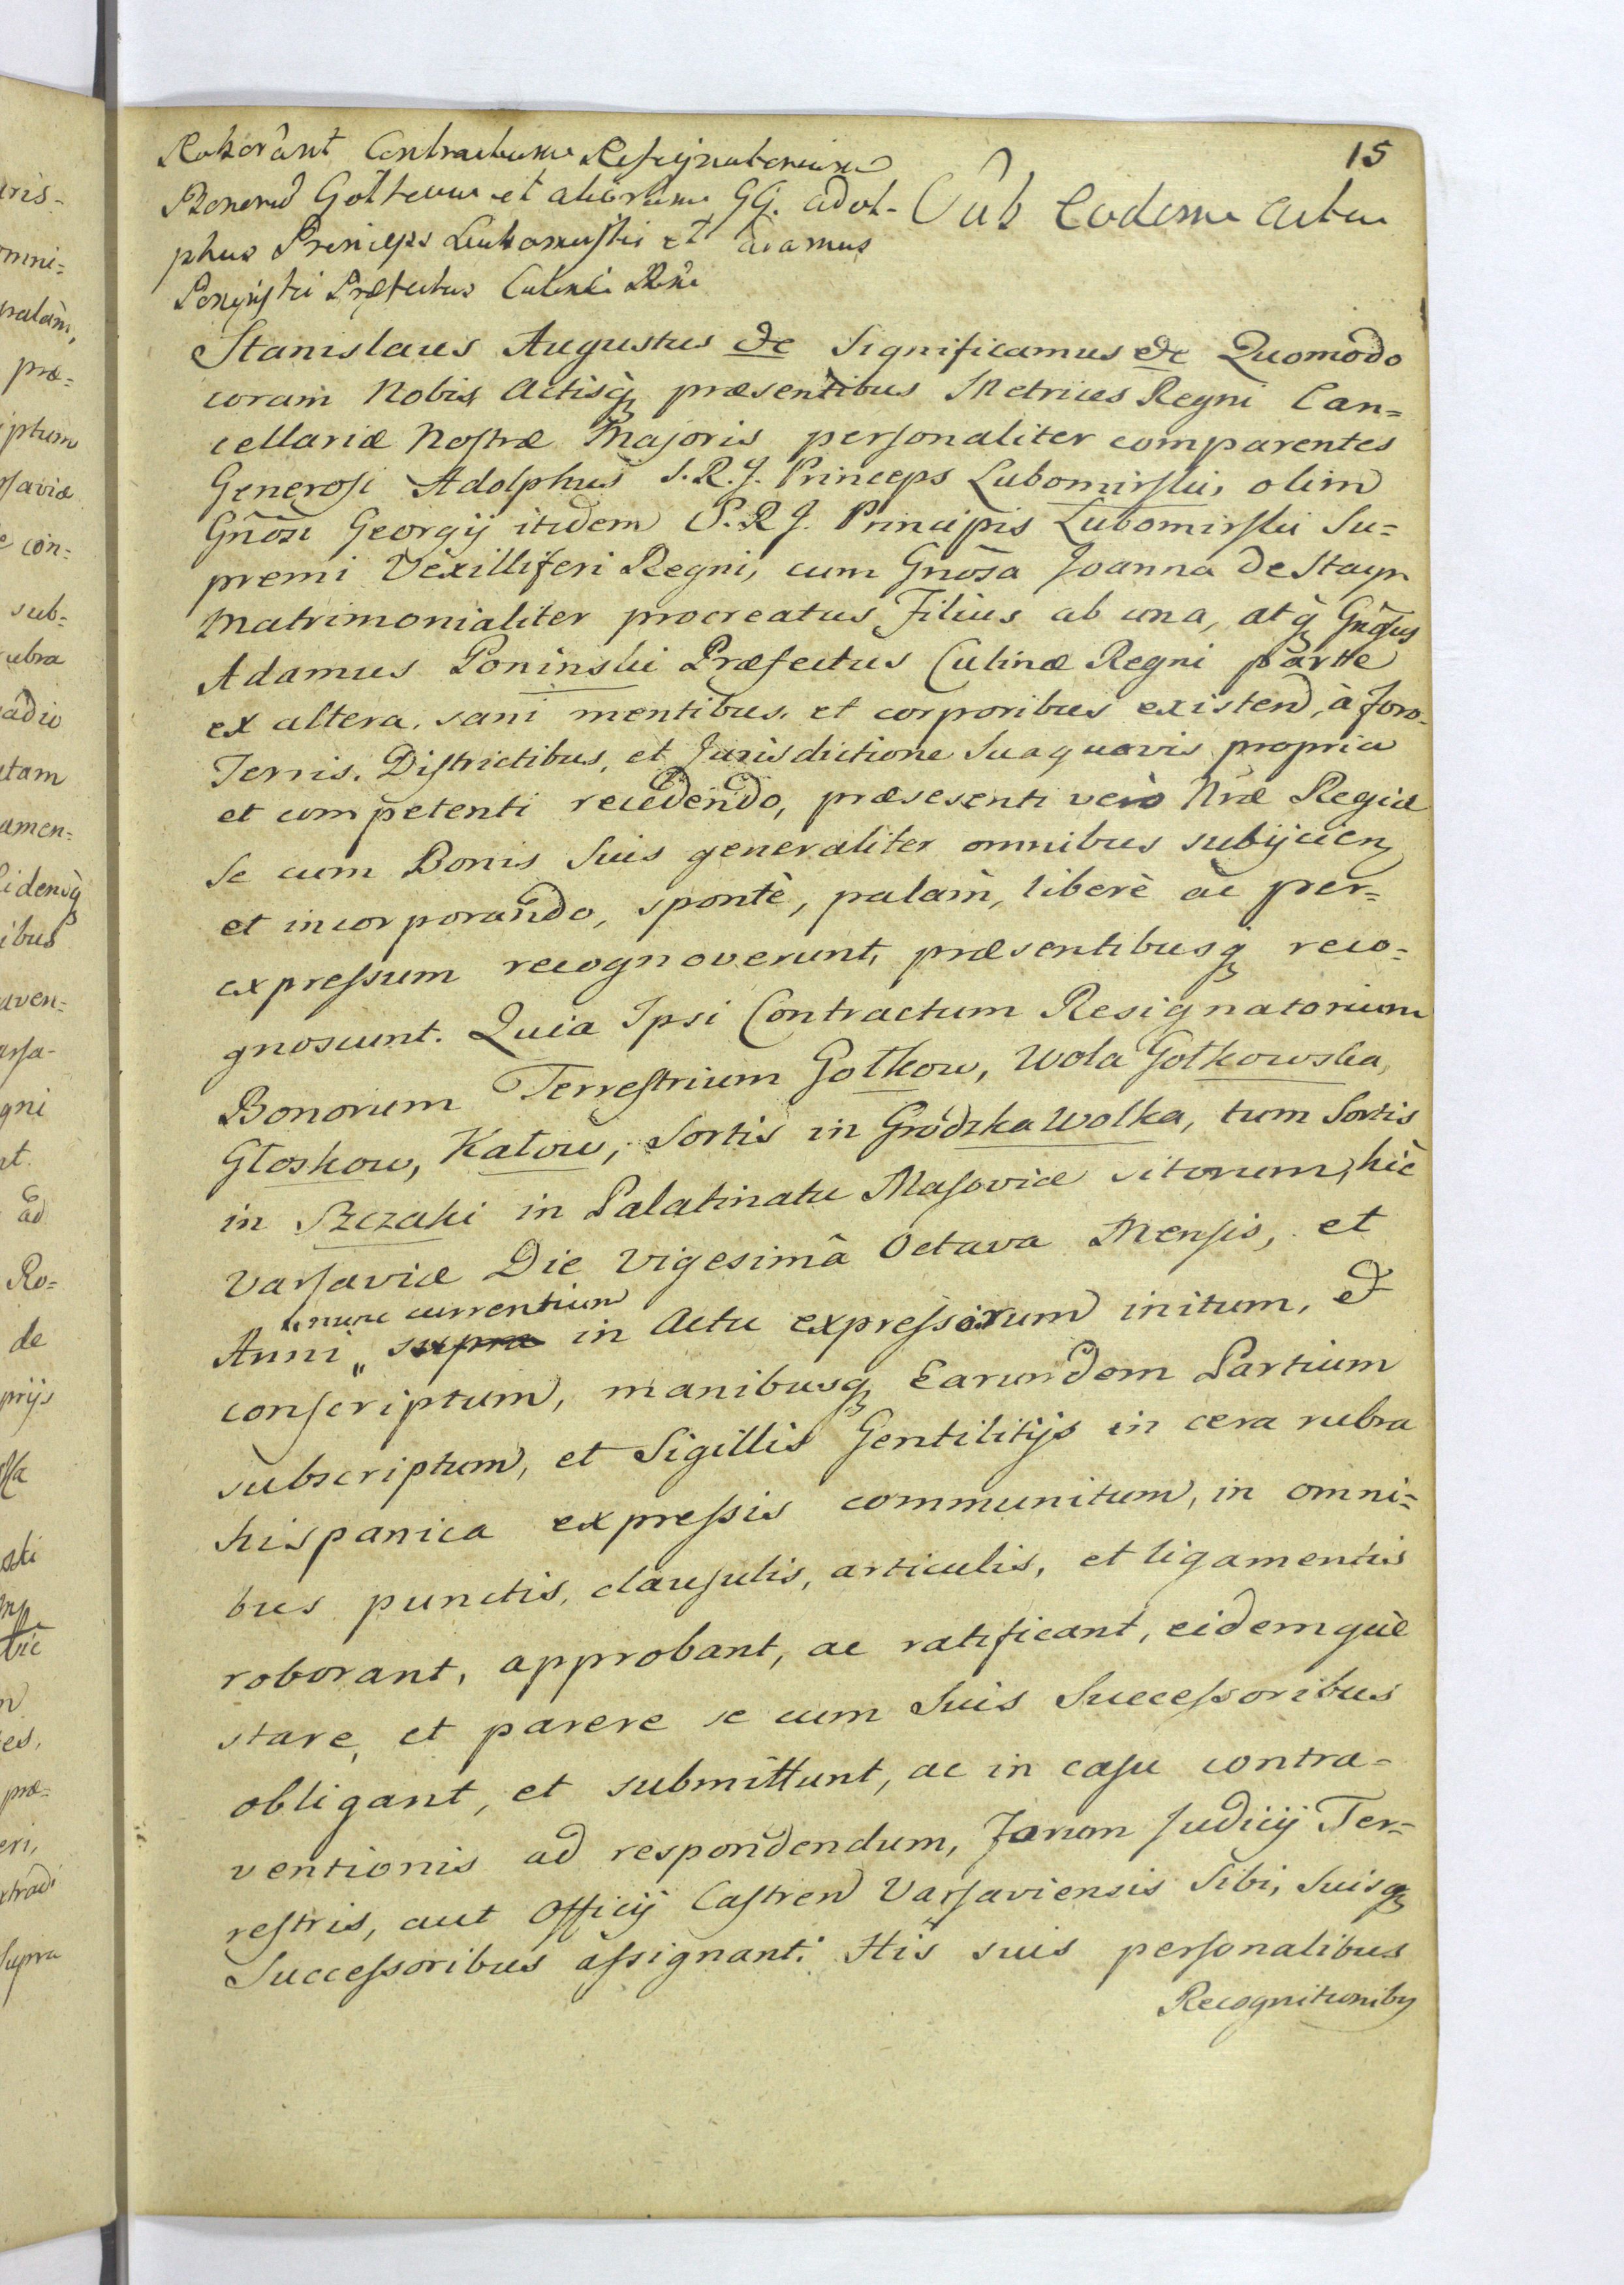 15
Roborant Contractum Resignatorium
Bonorũ Gołkow et aliorum GG. Adol-
phus Princeps Lubomirski et Adamus
Poniński Præfectus Culinæ Rñi
Sub Eodem Actu
Stanislaus Augustus &c Significamus &c Quomodo
coram Nobis Actisq̃ præsentibus Metrices Regni Can=
cellariæ Nostræ Majoris personaliter comparentes
Generosi Adolphus S. R. J. Princeps Lubomirski, olim
Gñosi Georgij itidem S. R. J. Principis Lubomirski Su=
premi Vexilliferi Regni, cum Gñosa Joanna de Stayn
Matrimonialiter procreatus Filius ab una, atq̃ Gñosus
Adamus Poninski Præfectus Culinæ Regni parte
ex altera, sani mentibus, et corporibus existend, à foro
Terris, Districtibus, et Jurisdictione Sua quavis propria
et competenti recedendo, præsesenti verò Nræ Regiæ
se cum Bonis Suis generaliter omnibus subijcien
et incorporando, spontè, palàm, liberè àc per=
expressum recognoverunt, præsentibusq̃ reco=
gnoscunt. Quia Ipsi Contractum Resignatorium
Bonorum Terrestrium Gołkow, Wola Gołkowska,
Głoskow, Kałow, Sortis in Gródzka Wolka, tum Sortis
in Szczaki in Palatinatu Masoviæ sitorum, hìc
Varsaviæ Die Vigesimâ Octava Mensis, et
nunc currentium
Anni " supra in Actu expressorum initum, &
conscriptum, manibusq̃ Earundem Partium
subscriptum, et Sigillis Gentilitijs in cera rubra
hispanica expressis communitum, in omni=
bus punctis, clausulis, articulis, et ligamentis
roborant, approbant, ac ratificant, eidemquè
stare, et parere se cum Suis Successoribus
obligant, et submittunt, ac in casu contra=
ventionis ad respondendum, Forum Judicij Ter=
restris, aut Officij Castren Varsaviensis Sibi, Suisq̃
Successoribus assignant. His suis personalibus
Recognitioniby